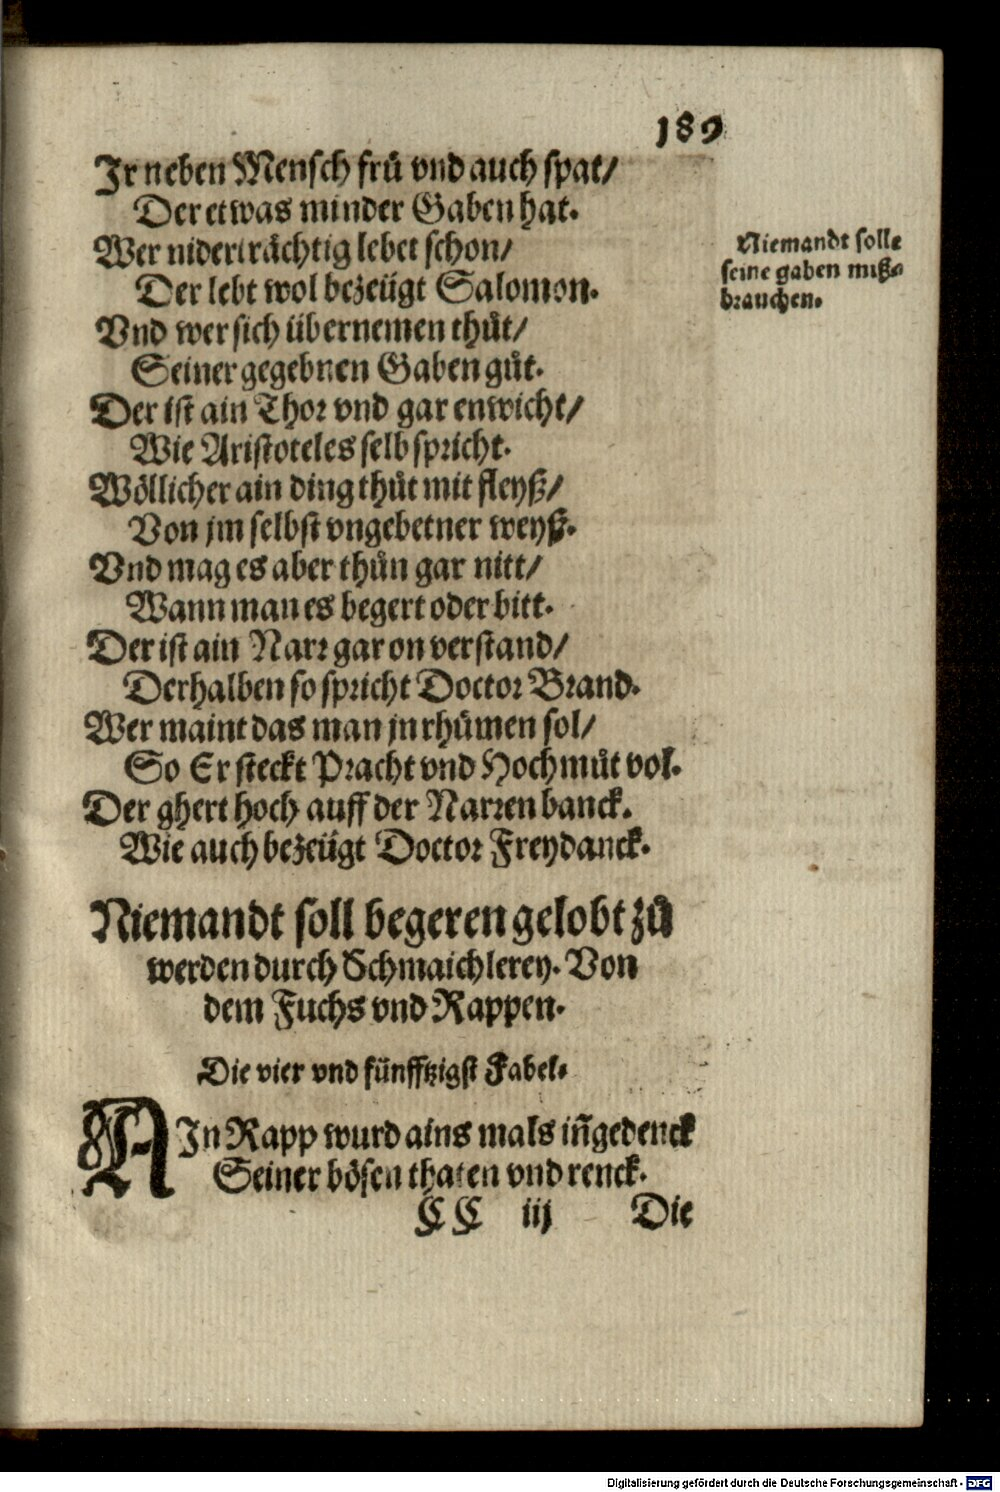 189
Jr neben Mensch frů vnd auch spat/
Der etwas minder Gaben hat.
Wer niderträchtig lebet schon/
Der lebt wol bezeügt Salomon.
Vnd wer sich übernemen thůt/
Seiner gegebnen Gaben gůt.
Der ist ain Thor vnd gar enwicht/
Wie Aristoteles selb spricht.
Wöllicher ain ding thůt mit fleyß/
Von jm selbst vngebetner weyß.
Vnd mag es aber thůn gar nitt/
Wann man es begert oder bitt.
Der ist ain Narr gar on verstand/
Derhalben so spricht Doctor Brand.
Wer maint das man jn rhůmen sol/
So Er steckt Pracht vnd Hochmůt vol.
Der ghert hoch auff der Narren banck.
Wie auch bezeügt Doctor Freydanck.
Niemandt solle
seine gaben miß-
brauchen.
Niemandt soll begeren gelobt zů
werden durch Schmaichlerey. Von
dem Fuchs vnd Rappen.
Die vier vnd fünfftzigst Fabel.
AJn Rapp wurd ains mals iñgedenck
Seiner bösen thaten vnd renck.
CC iij Die
Digitalisierung gefördert durch die Deutsche Forschungsgemeinschaft - DFG